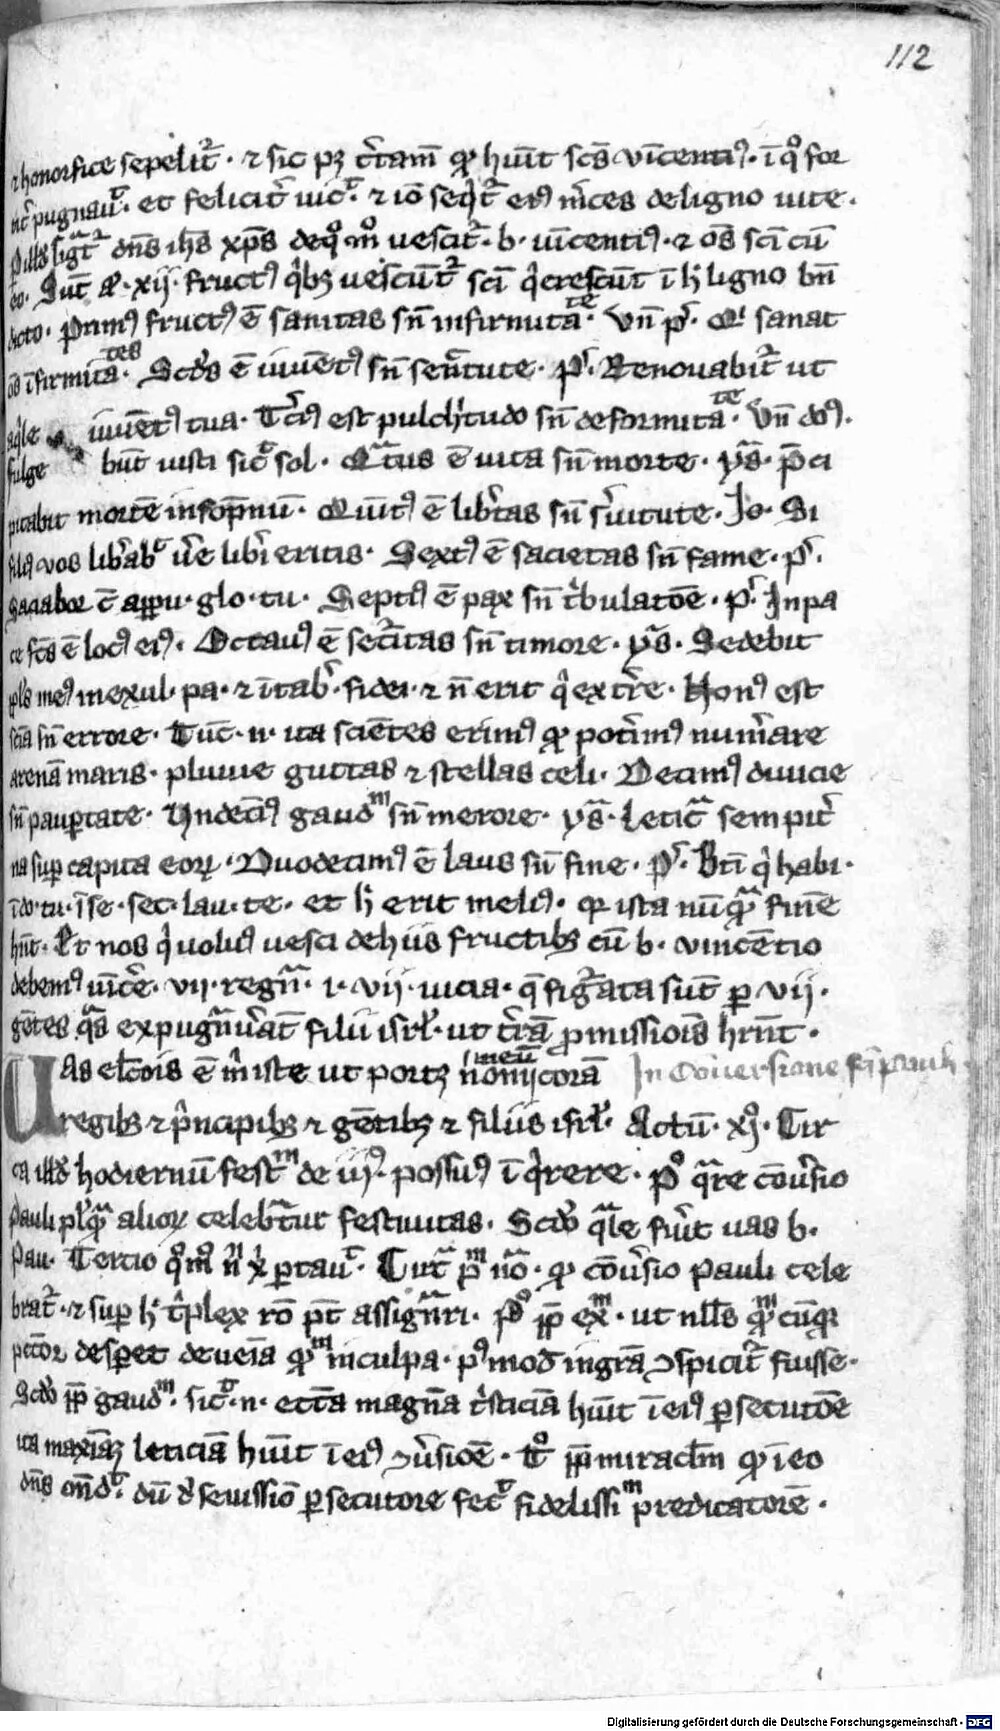 112
⁊ honorifice sepelit᷑ . ⁊ sic pꝫ c̃tamē qḋ huīt scs̄ vincenti᷒ . ī qͦ for
tit᷑ pugnauͭ . et felicit᷑ uicͭ . ⁊ iō seq̇t᷑ ei᷒ m̃ces de ligno uite .
dn̄s ih̄s xp̄s de qͦ mͦ uescit᷑ . b . uincenti᷒ . ⁊ oēs sci cū
eo . Sūt .xij. fruct᷒ qͥbꝫ uescūt᷑ sci qͥ crescūt ī h̄ ligno bn̄
dicto . Prim᷒ fruct᷒ ē sanitas sn̄ infirmitate . Vn̄ ps̄ . Qͥ sanat
oēs īfirmitates . Scds̄ ē iuuēt᷒ sn̄ senctute . ps̄ . Renouabit᷑ ut
aq̇le iuuēt᷒ tua . Tci᷒ est pulch̓tudo sn̄ deformitate . Vn̄ do᷒ .
fulge būt iusti sicͭ sol . Qͣrtus ē uita sn̄ morte . ys̄ . p̄ci
pitabit mortē in sēp̄nū . Quīt᷒ ē lib̄tas sn̄ s̄uitute . Jo . Si
fili᷒ vos lib̄ab̓ ūe lib̄i eritis . Sext᷒ ē sacietas sn̄ fame . ps̄ .
Saciabor c̄ appu . glo . tu . Septi᷒ ē pax sn̄ tͥbulatōe . ps̄ Jn pa
ce fcs̄ ē loc᷒ ei᷒ . Octau᷒ ē sec̄itas sn̄ timore . ys̄ . Sedebit
ppl̄s me᷒ in expul . pa . ⁊ ī tab̄ . fidei . ⁊ n̄ erit qͥ ext̄re . Non᷒ est
scīa sn̄ errore . Tūc . n . ita sciētes erim᷒ qḋ pot̄im᷒ num̄are
arenā maris . pluuie guttas ⁊ stellas celi . Decim᷒ diuicie
sn̄ paup̱tate . Undeci᷒ gaudm̄ sn̄ merore . ys̄ . Leticͣ sempit̄
na sup̱ capita eoꝝ . Duodecim᷒ ē laus sn̄ fine . ps̄ . Bt̄i qͥ habi .
ī do . tu . ī se . sec . lau . te . et h̄ erit meli᷒ . qr ista nūqͣ finē
hn̄t . Et nos qͥ uolum᷒ uesci de hiis fructibꝫ cū b . vincētio
debem᷒ uīce . vij . regn̄ . i . vij . uicia . q̄ figͣata sūt p̱ vij .
gētes qͣs expugnau̅ūt filii isrl̄ . ut t̄rā ꝓmissiōis hr̄nt .
Uas elc̄ois ē m̓ iste ut portꝫ nom̄ meū corā In Cōuersione sc̄i pauli
regibꝫ ⁊ pͥncipibꝫ ⁊ gētibꝫ ⁊ filiis isrl̄ . Actū . xj . Cir
ca illd̄ hodiernū festm̄ de iij᷒ . possum᷒ īqͥrere . Pͦ qͣre cōūsio
Pauli pl̓qͣ alioꝝ celebrat᷑ festiuitas . Scdō qͣle fūit uas b .
Pau . Tercio qͦmͦ n̄ xͥ p̱tauͭ . Circͣ pm̄ nō . qḋ cōūsio Pauli cele
brat᷑ . ⁊ sup̱ h̄ tͥplex rō pt̄ assignari . Pͦ pp̄ exm̄ . ut nll̄s qͣmcūqꝫ
pctōr desp̱et de uenia qͣm̄ in culpa . p᷒mod ingrā ꝯspicit᷑ fuisse .
Scdō pp̄ gaudm̄ . sicͭ . n . ecc̄ia magnā tͥsticiā huīt ī ei᷒ p̱secutōe
ita maxiā leticiā huīt ī ei᷒ ꝯūsiōe . Tͦ pp̄ miraclm̄ qḋ ī eo
dn̄s oñdͭ . dū d̄ seuissiō p̱secutore fecͭ fidelissim̄ predicatorē .
Digitalisierung gefördert durch die Deutsche Forschungsgemeinschaft - DFG